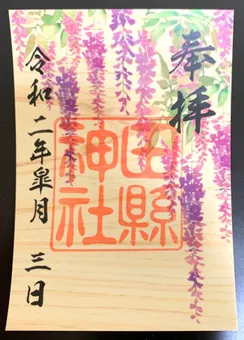 奉拝
山縣
神社
令和二年皐月三日